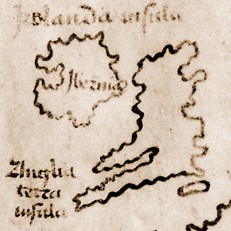 Islanda insula
Ibernia
Aneglia
terra
insula